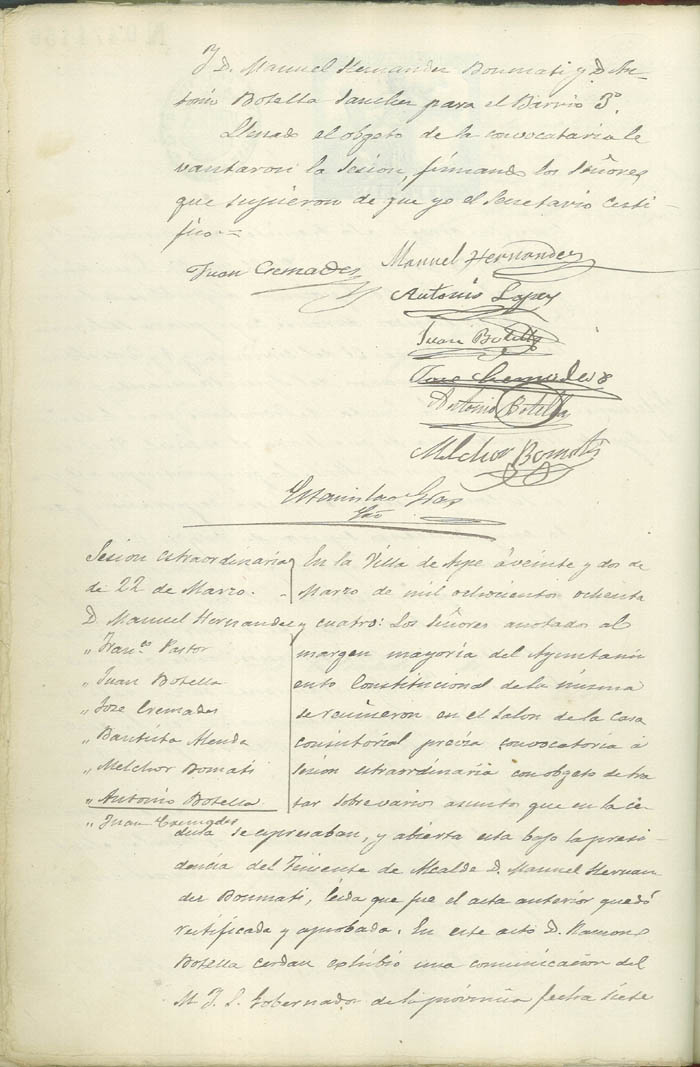 Y D. Manuel Hernandez Boumati y D. An-
tonio Botella Sanchez para el Barrio 3º.
Llenado el obgeto de la convocatoria le
vantaron la sesion, firmando los Señores
que supieron de que yo el Secretario certi-
fico =
Juan Cremades
Manuel Hernandez
Antonio Lopez
Juan Botella
Jose Cremades
Antonio Botella
Melchor Bomati
Estanislao
Srio
Sesion estraordinaria
de 22 de Marzo.
D. Manuel Hernandez
" Franco. Pastor
" Juan Botella
" Jose Cremades
" Bautista Alenda
" Melchor Bomati
" Antonio Botella
" Juan Cremades
En la Villa de Aspe á veinte y dos de
Marzo de mil ochocientos ochenta
y cuatro: Los Señores anotados al
margen mayoría del Ayuntami
ento Constitucional de la misma
se reuñeron en el salon de la Casa
consistorial previa convocatoria á
sesion estraordinaria con obgeto de tra
tar sobre varios asuntos que en la cé-
dula se espresaban, y abierta esta bajo la presi-
dencia del Teniente de Alcalde D. Manuel Hernan
dez Boumati, leida que fue el acta anterior quedó
rectificada y aprobada. En este acto D. Ramon
Botella Cerdan exhibio una comunicacion del
M. I. S. Gobernador de la provincia fecha siete